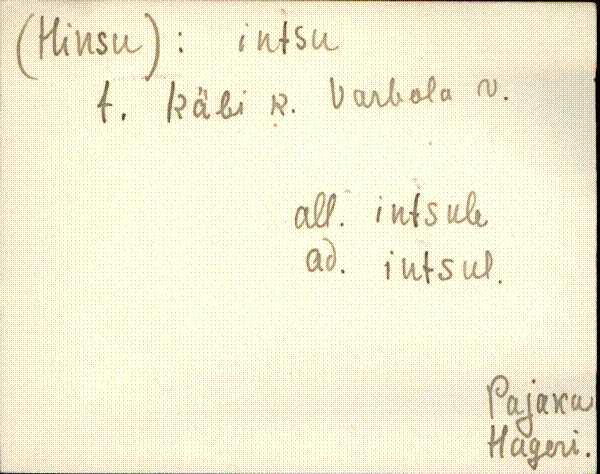 (Hinsu) : intsu
t. Käbi k. Varbola v.
all. intsule
ad. intsul.
Pajaka
Hageri.